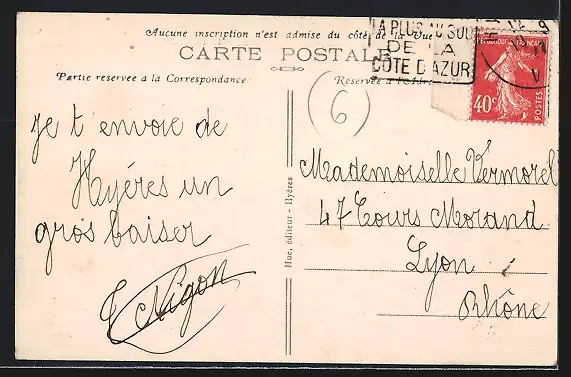 Aucune inscription n'est admise du côté de la Vue
CARTE POSTALE
Partie reservee a la Correspondance
Réservée a l'Adre
LA PLUS AU SUD
DE LA
CÔTE D'AZUR
REPUBLIQUE FRANÇAISE
40c
POSTES
6
je t envoie de
Hyéres un
gros baiser
Nigon
Hue, éditeur - Hyères
Mademoiselle Vermorel
47 Cours Morand
Lyon
Rhône